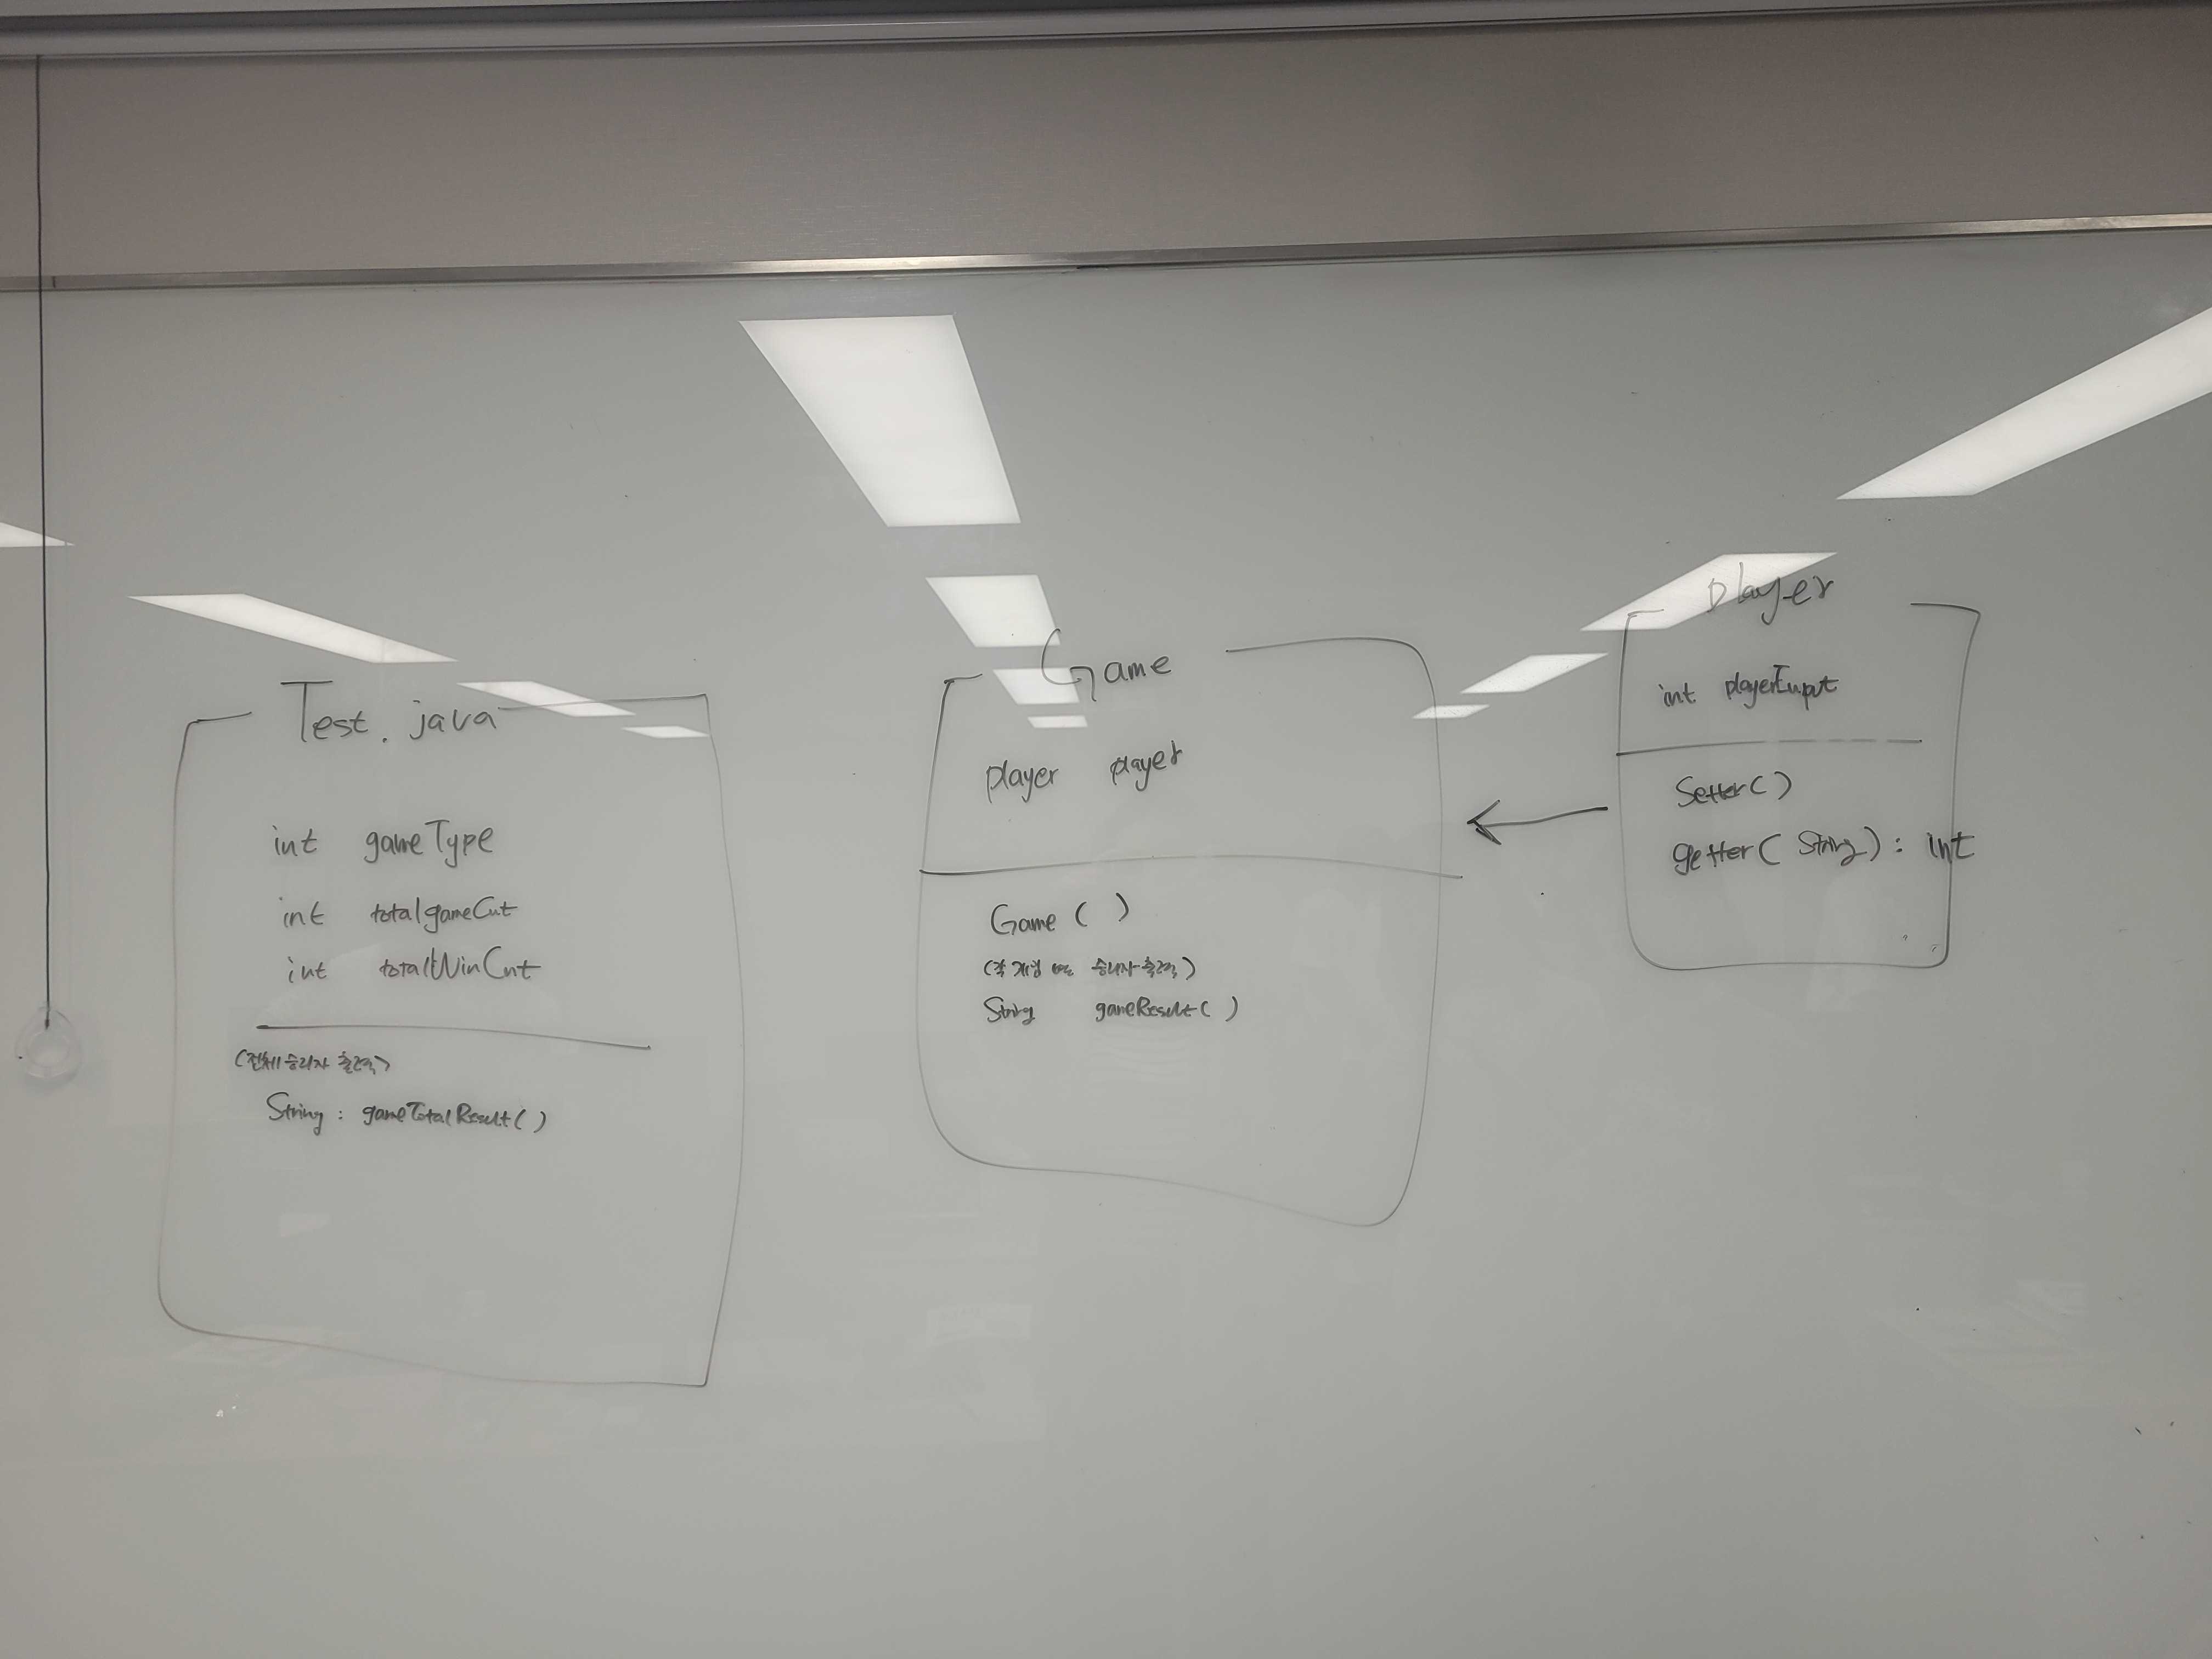 Test.java
int gameType
int totalgameCnt
int totalWinCnt
(전체 승리자 출력)
String : gameTotalResult()
Game
player player
Game ( )
(각 게임 승리자 출력)
String gameResult( )
player
int playerInput
Setter()
getter( String) : int